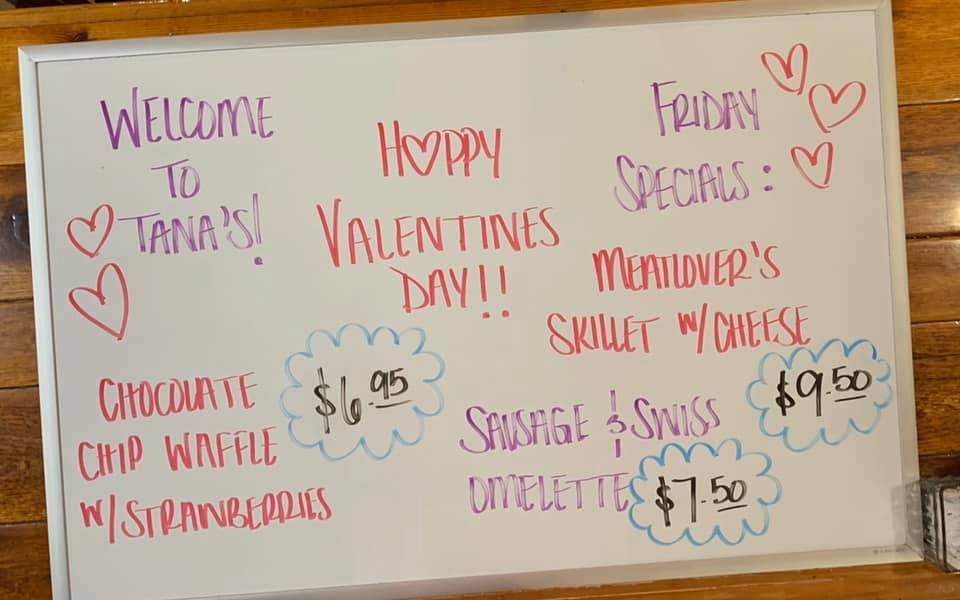 WELCOME
TO
TANA'S!
HAPPY
VALENTINES
DAY!!
FRIDAY
SPECIALS:
MEATLOVER'S
SKILLET W/CHEESE
$9.50
CHOCOLATE
CHIP WAFFLE
W/STRAWBERRIES
$6.95
SAUSAGE & SWISS
OMELETTE
$7.50